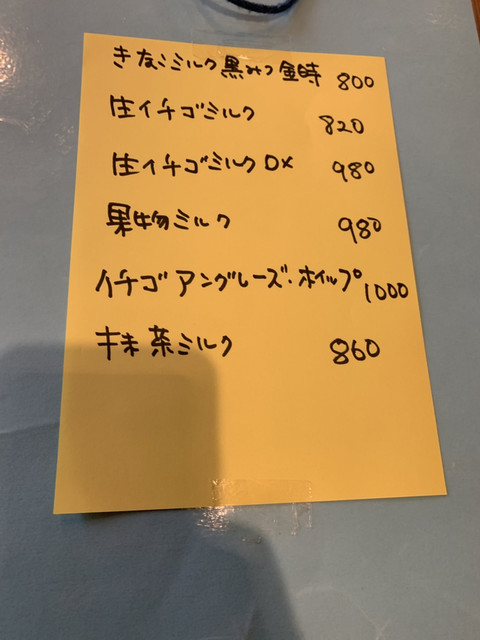 きなこミルク黒みつ金時 800
生イチゴミルク 820
生イチゴミルクDX 980
果物ミルク 980
イチゴアングレーズ・ホイップ 1000
抹茶ミルク 860